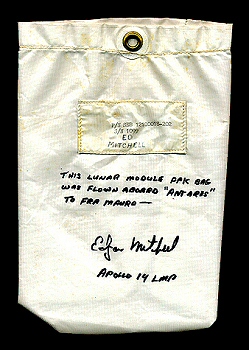 S/N 1099
ED
MITCHELL
THIS LUNAR MODULE PPK BAG
WAS FLOWN ABOARD "ANTARES"
TO FRA MAURO —
Edgar Mitchell
APOLLO 14 LMP